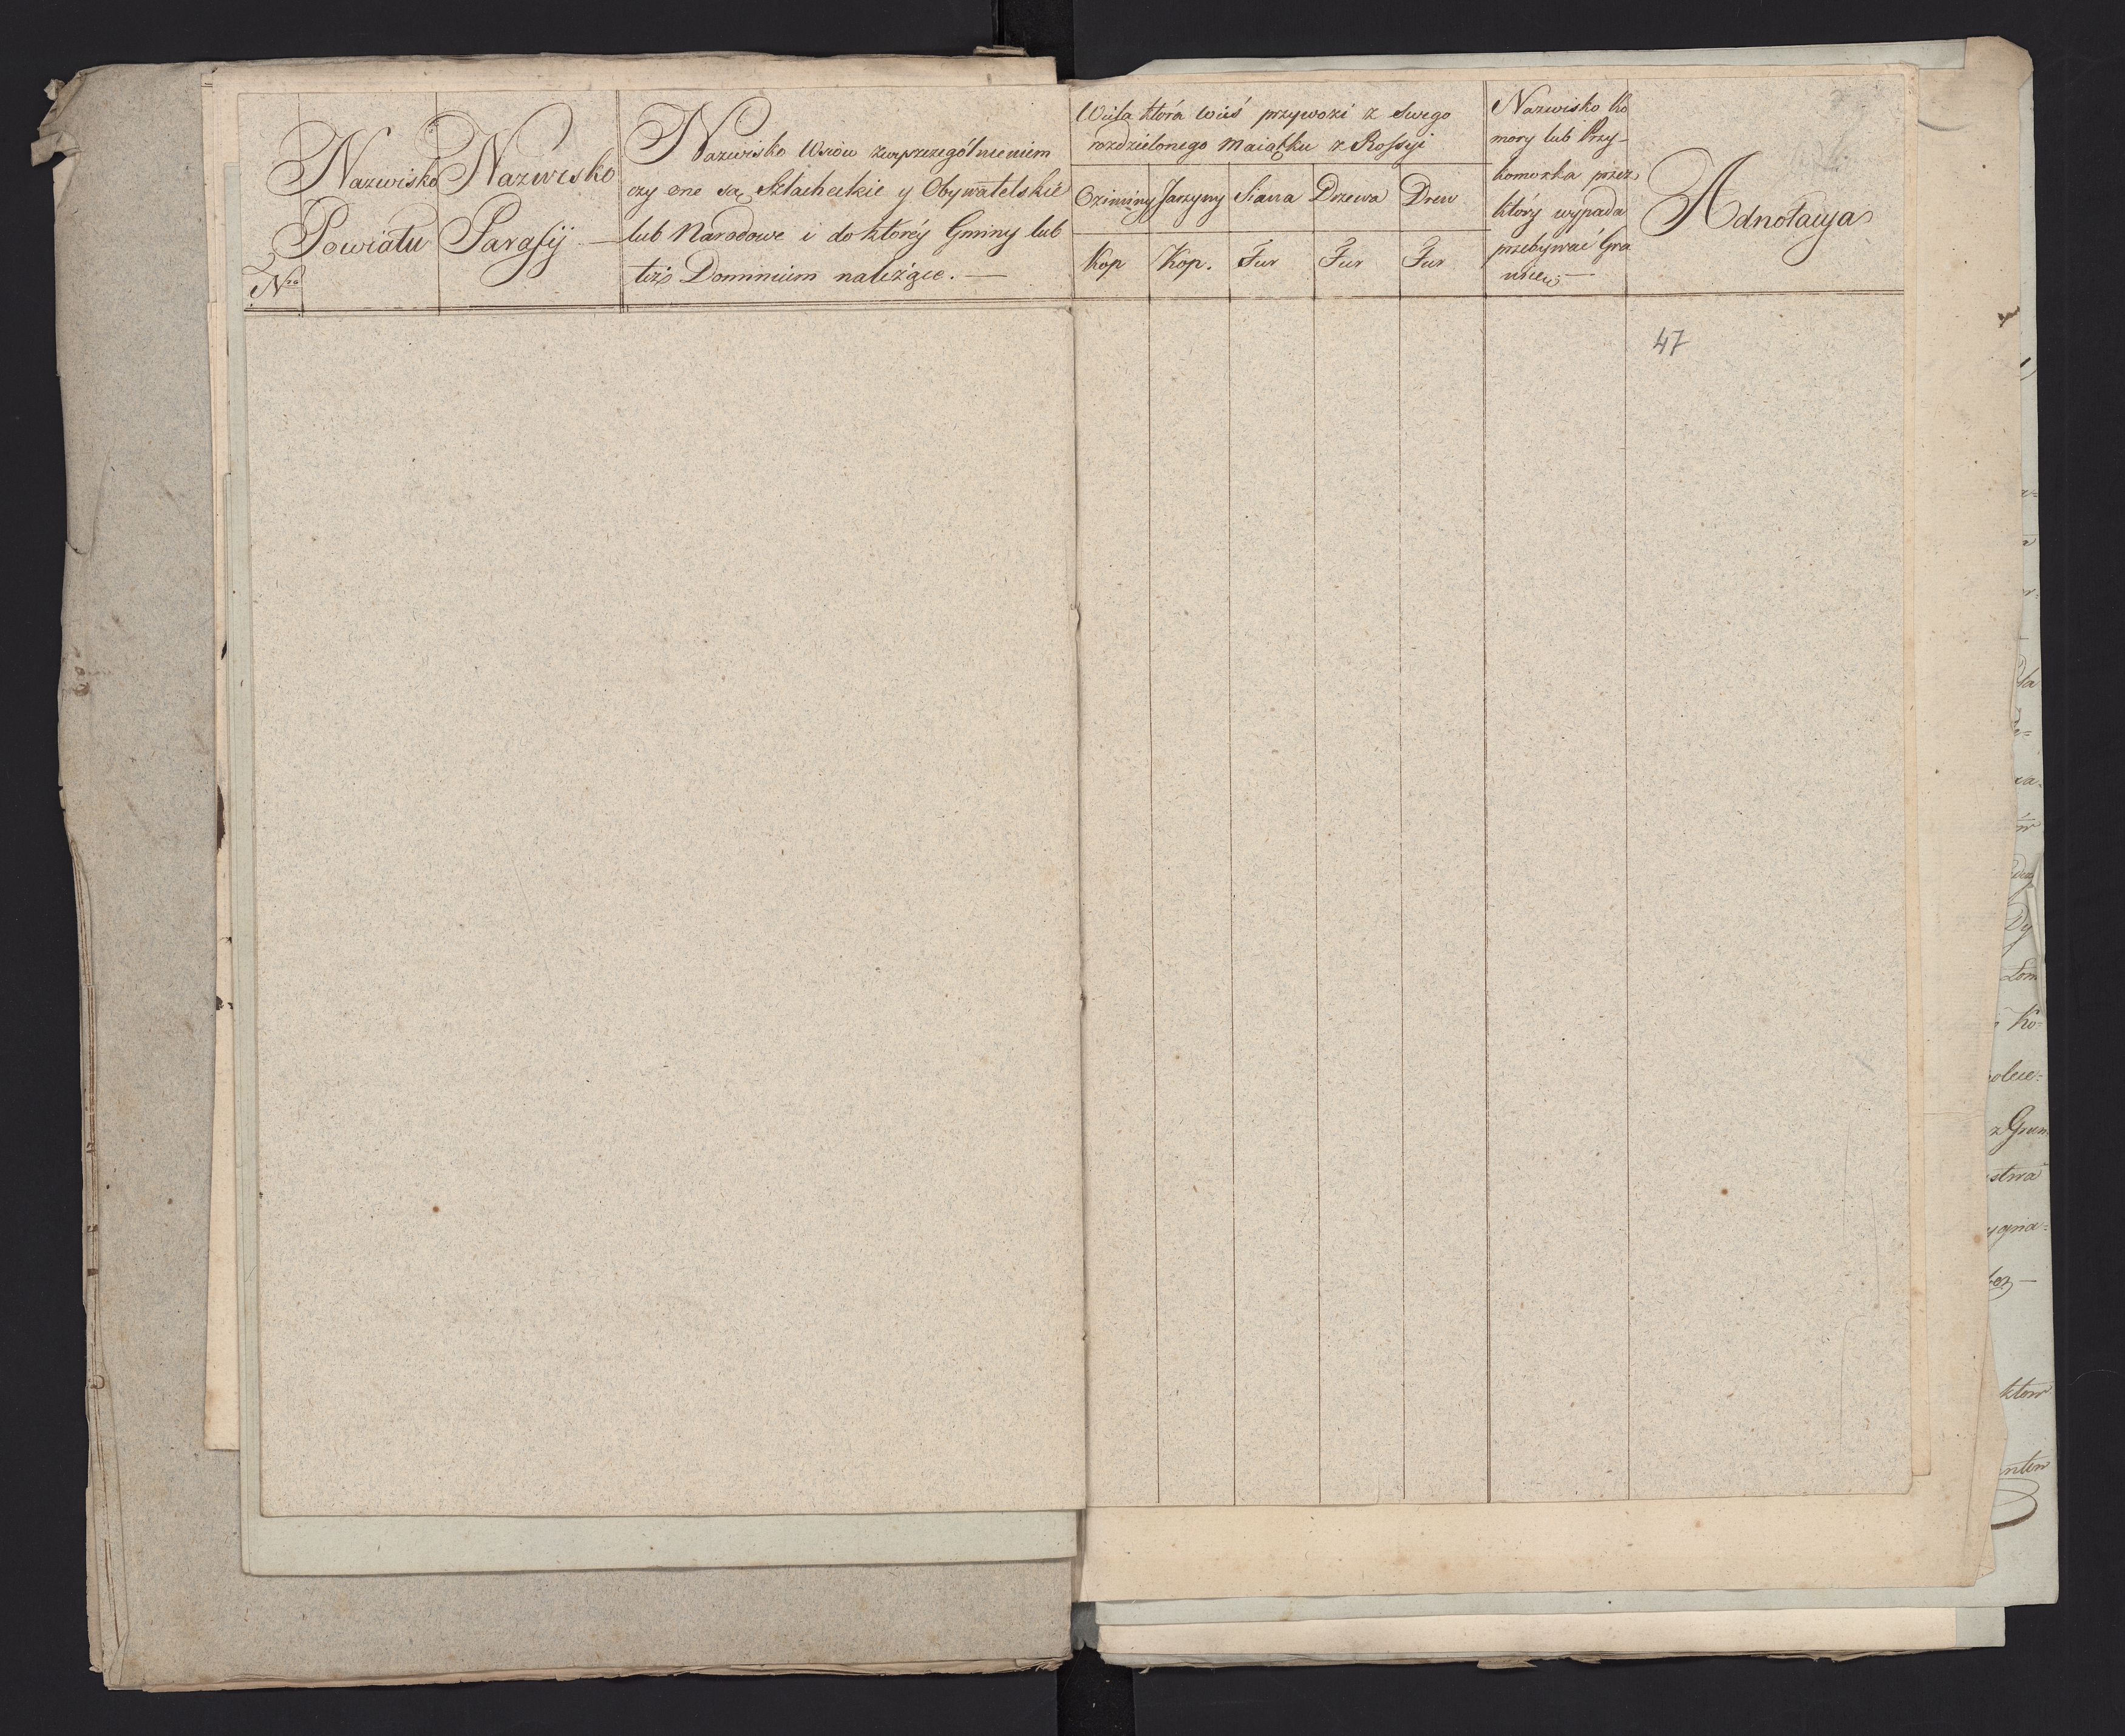 Nro
Nazwisko
Powiatu
Nazwisko
Parafij. —
Nazwisko Wsiow zwyszczegolnieniem
czy one są Szlacheckie y Obywatelskie
lub Narodowe i do któréy Gminy lub
też Dominium należące. —
Wiela która wieś przywozi z swego
rozdzielonego Maiątku z Rossyi
Oziminy
Kop
Jarzyny
Kop.
Siana
Fur
Drzewa
Fur
Drew
Fur
Nazwisko Ko
mory lub Przy-
komorka przez
który wypada
przebywać Gra
nicew —
Adnotacya
47